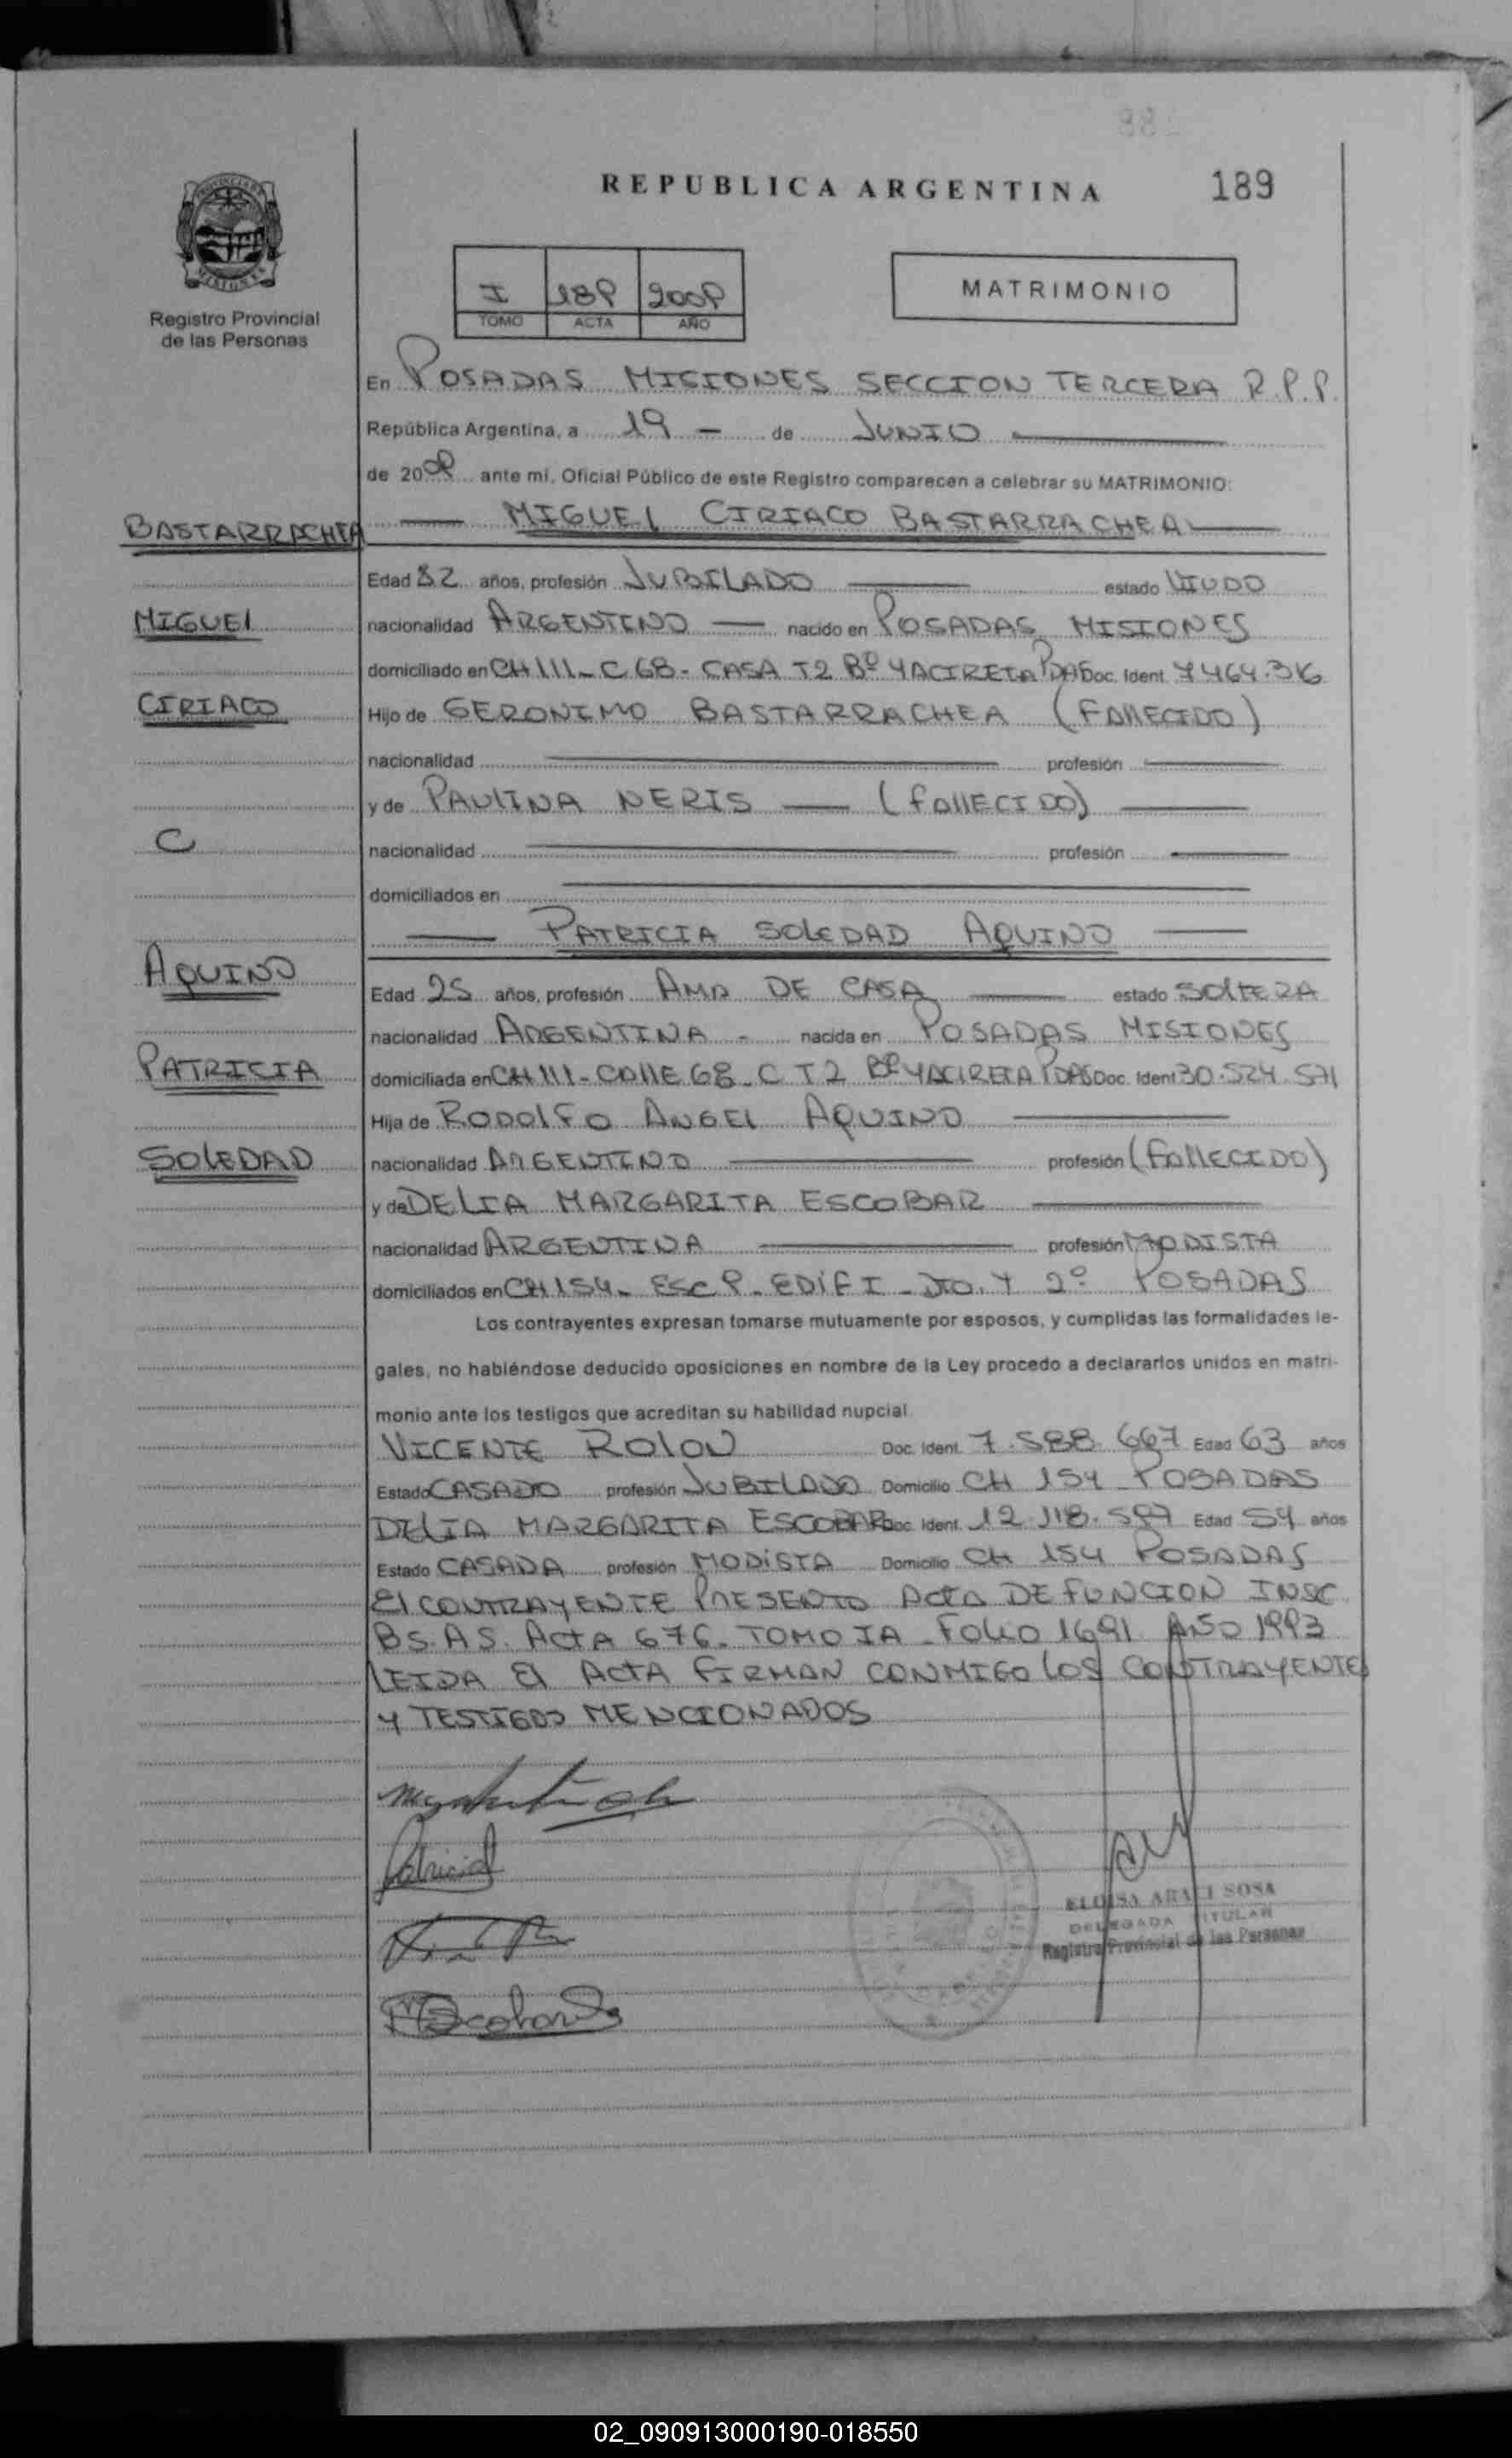 REPUBLICA ARGENTINA
189
Registro Provincial
de las Personas
I 189 2009
TOMO ACTA AÑO
MATRIMONIO
En POSADAS MISIONES SECCION TERCERA R.P.P.
República Argentina, a 19 - de JUNIO
de 2009 ante mí, Oficial Público de este Registro comparecen a celebrar su MATRIMONIO:
BASTARRACHEA
MIGUEL CIRIACO BASTARRACHEA
Edad 82 años, profesión JUBILADO estado VIUDO
MIGUEL
nacionalidad ARGENTINO nacido en POSADAS MISIONES
domiciliado en CH 111 - C 68 - CASA T2 Bº YACIRETA PDAS Doc. Ident. 7464.316
CIRIACO
Hijo de GERONIMO BASTARRACHEA (FALLECIDO)
nacionalidad profesión
y de PAULINA NERIS (FALLECIDO)
C
nacionalidad profesión
domiciliados en
PATRICIA SOLEDAD AQUINO
AQUINO
Edad 25 años, profesión AMA DE CASA estado SOLTERA
nacionalidad ARGENTINA - nacida en POSADAS MISIONES
PATRICIA
domiciliada en CH 111 - CALLE 68 - C T2 Bº YACIRETA PDAS Doc. Ident 30.524.571
Hija de RODOLFO ANGEL AQUINO
SOLEDAD
nacionalidad ARGENTINO profesión (FALLECIDO)
y de DELIA MARGARITA ESCOBAR
nacionalidad ARGENTINA profesión MODISTA
domiciliados en CH 154 - ESC P - EDIF I - DTO. Y 2º POSADAS
Los contrayentes expresan tomarse mutuamente por esposos, y cumplidas las formalidades le-
gales, no habiéndose deducido oposiciones en nombre de la Ley procedo a declararlos unidos en matri-
monio ante los testigos que acreditan su habilidad nupcial.
VICENTE ROLON Doc. Ident. 7.588.667 Edad 63 años
Estado CASADO profesión JUBILADO Domicilio CH 154 - POSADAS
DELIA MARGARITA ESCOBAR Doc. Ident. 12.118.597 Edad 54 años
Estado CASADA profesión MODISTA Domicilio CH 154 POSADAS
El CONTRAYENTE PRESENTO ACTA DEFUNCION INSC
BS. AS. ACTA 676 - TOMO IA - FOLIO 1691 AÑO 1993
LEIDA El ACTA FIRMAN CONMIGO LOS CONTRAYENTES
Y TESTIGOS MENCIONADOS
Patricia
ELOISA ARACI SOSA
DELEGADA TITULAR
Registro Provincial de las Personas
02_090913000190-018550